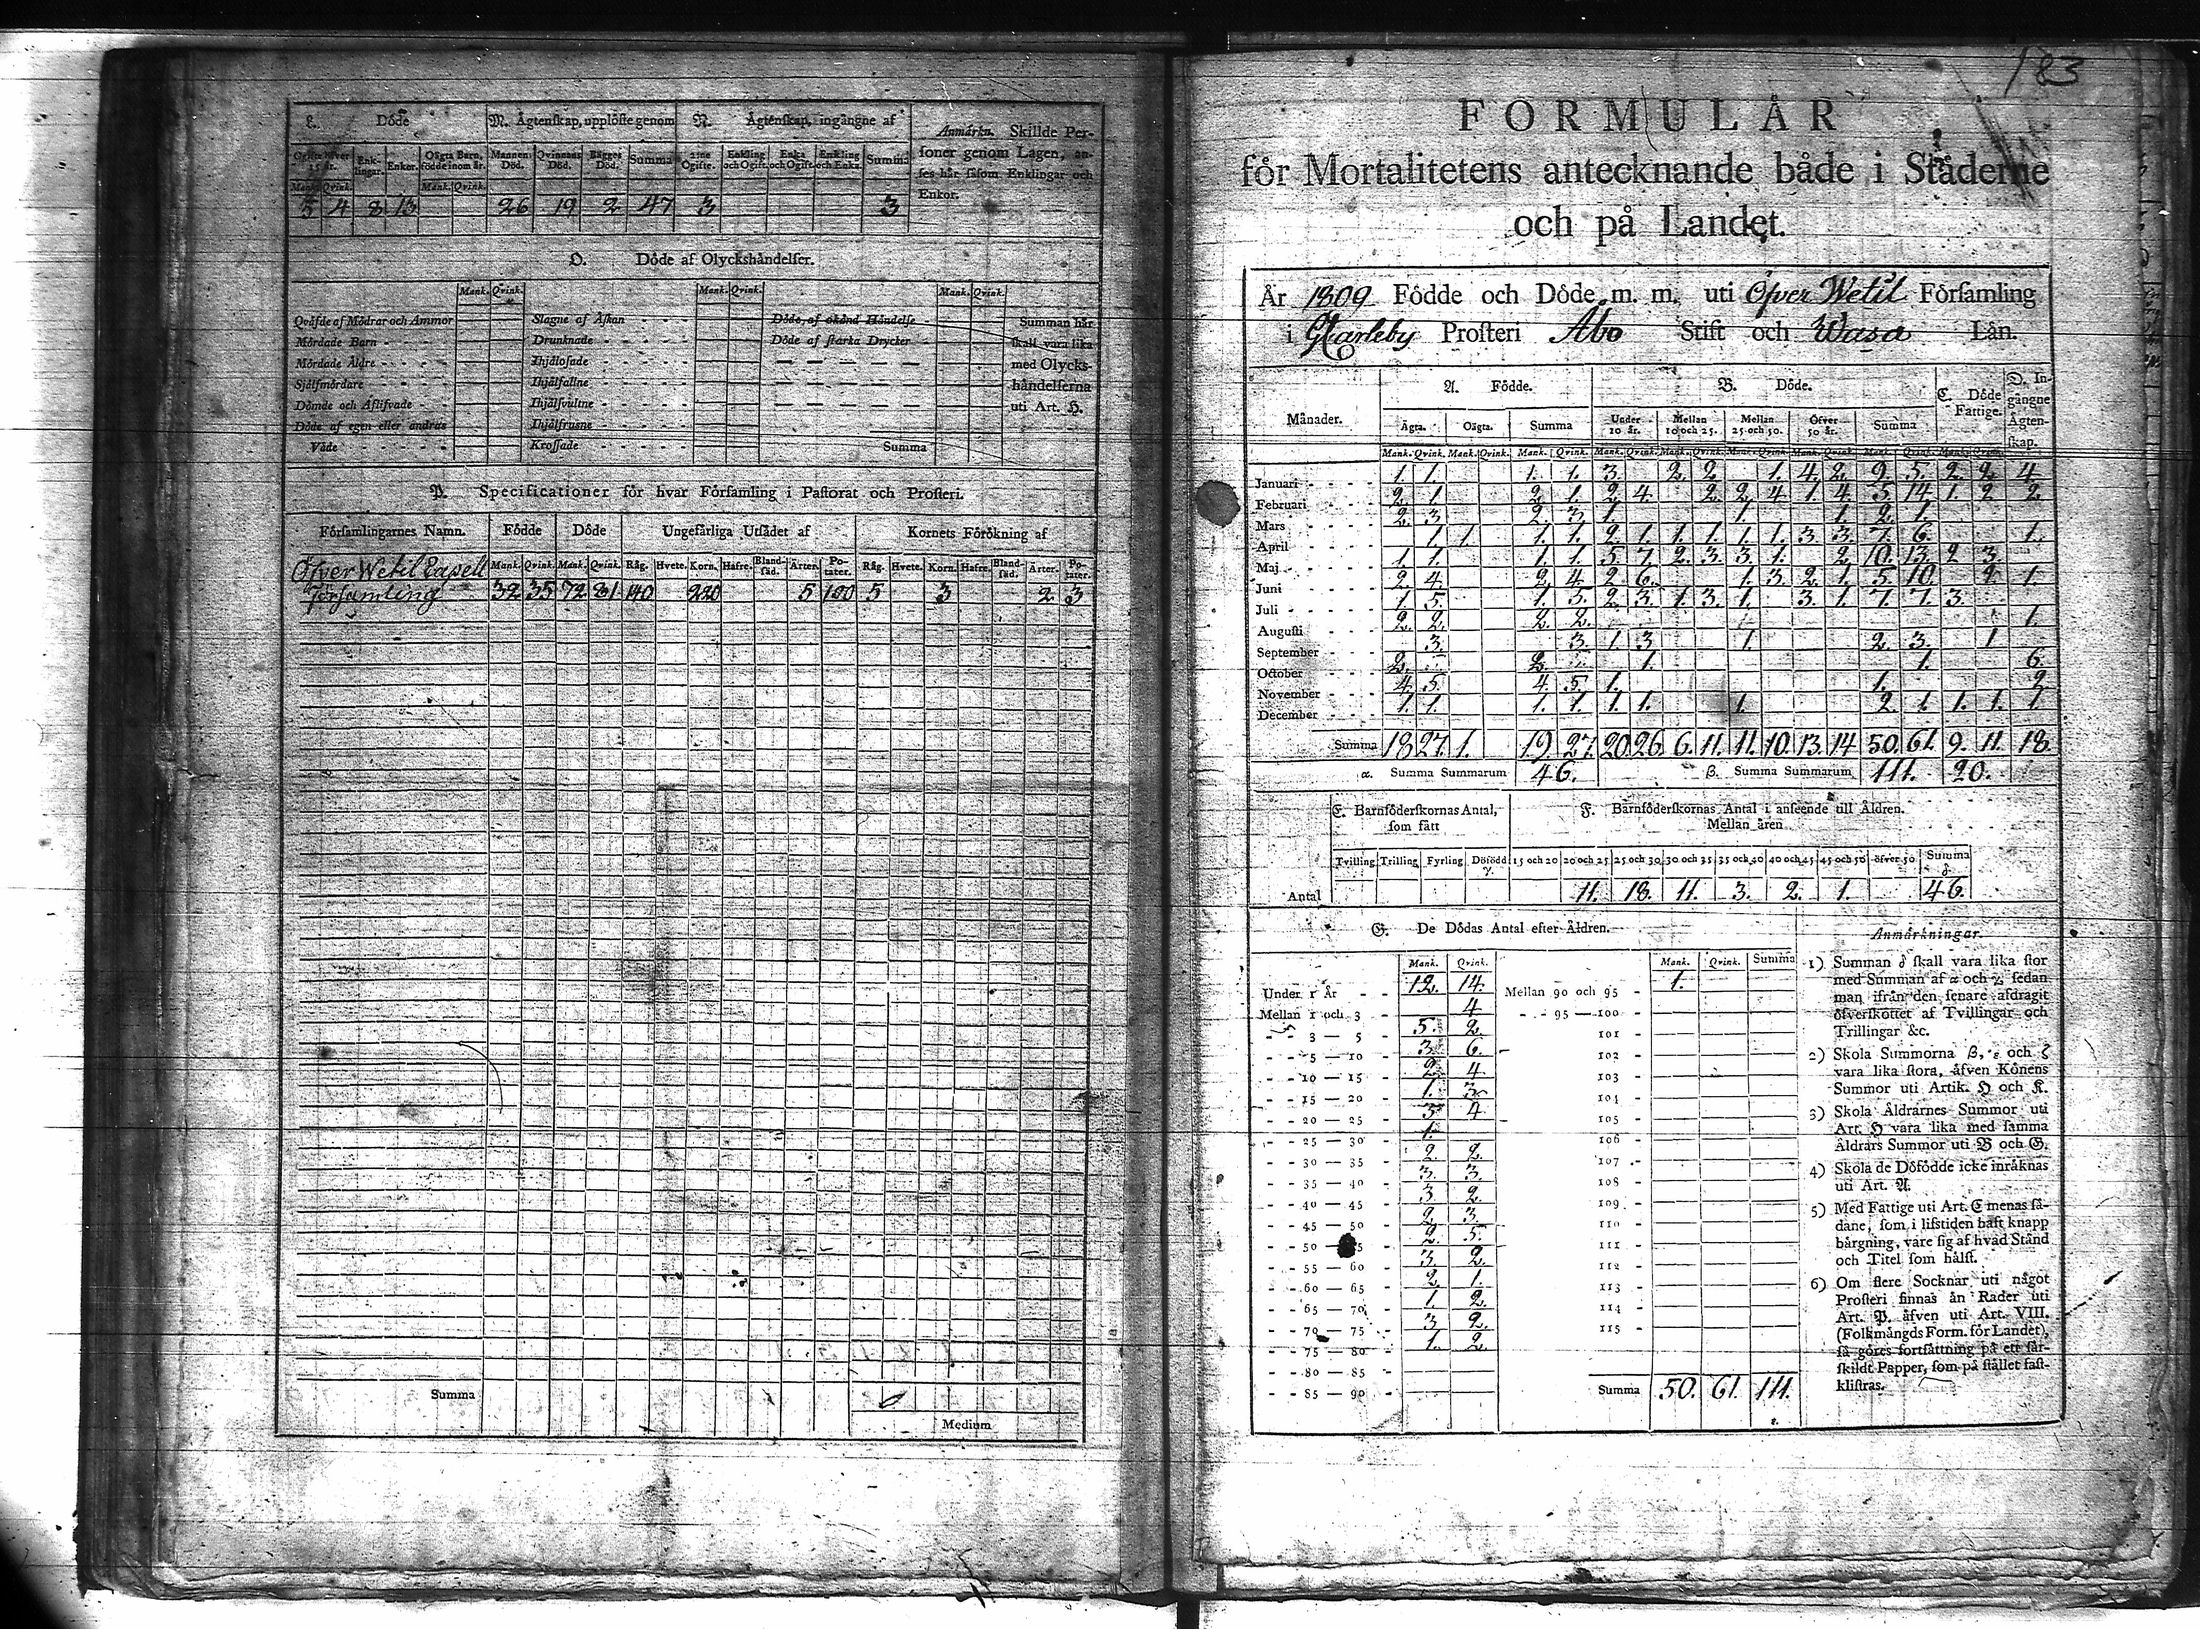 L. Döde
M. Ägtenskap, upplöste genom
N. Ägtenskap, ingångne af
Anmärkn. Skillde Per-
soner genom Lagen, an-
ses här såsom Enklingar och
Enkor.
Ogifte öfver 15 år. Enk-lingar. Enkor. Oägta Barn, födde inom år. Mannens Död. Qvinnans Död. Bägges Död. Summa 2:ne Ogifte. Enkling och Ogift. Enka och Ogift. Enkling och Enka. Summa
Mank. Qvink. Mank. Qvink.
5 4 8 13 26 19 2 47 3 3
O. Döde af Olyckshändelser.
Mank. Qvink. Mank. Qvink. Mank. Qvink.
Qväfde af Mödrar och Ammor Slagne af Åskan Döde, af okänd Händelse Summan här
Mördade Barn Drunknade Döde af starka Drycker skall vara lika
Mördade Äldre Ihjälosade med Olycks-
Sjelfmördare Ihjälfallne händelserna
Dömde och Aflifvade Ihjälsvultne uti Art. H.
Döde af egen eller andras Ihjälfrusne
Våde Krossade Summa
P. Specificationer för hvar Församling i Pastorat och Prosteri.
Församlingarnes Namn. Födde Döde Ungefärliga Utsädet af Kornets Förökning af
Mank. Qvink. Mank. Qvink. Råg. Hvete. Korn. Hafre. Bland-säd. Ärter. Po-tater. Råg. Hvete. Korn. Hafre. Bland-säd. Ärter. Po-tater.
Öfver Wetil Capell
församling 32 35 72 81 140 220 5 100 5 3 2 3
Summa
Medium
183
FORMULÄR
för Mortalitetens antecknande både i Städerne
och på Landet.
År 1809 Födde och Döde m. m. uti Öfver Wetil Församling
i GKarleby Prosteri Åbo Stift och Wasa Län.
Månader. A. Födde. B. Döde. C. Döde Fattige. D. In-gångne Ägten-skap.
Ägta. Oägta. Summa Under 10 år. Mellan 10 och 25. Mellan 25 och 50. Öfver 50 år. Summa
Mank. Qvink. Mank. Qvink. Mank. Qvink. Mank. Qvink. Mank. Qvink. Mank. Qvink. Mank. Qvink. Mank. Qvink. Mank. Qvink.
Januari 1. 1. 1. 1. 3. 2. 2. 1. 4. 2. 9. 5. 2. 2. 4.
Februari 2. 1. 2. 1. 2. 4. 2. 2. 4. 1. 4. 5. 14. 1. 2 2.
Mars 2. 3. 2. 3. 1. 1. 1. 2. 1.
April 1. 1. 1. 1. 2. 1. 1. 1. 1. 1. 3. 3. 7. 6. 1.
Maj 1. 1. 1. 1. 5. 7. 2. 3. 3. 1. 2. 10. 13. 2. 3.
Juni 2. 4. 2. 4. 2. 6. 1. 3. 2. 1. 5. 10. 2. 1.
Juli 1. 5. 1. 5. 2. 3. 1. 3. 1. 3. 1. 7. 7. 3.
Augusti 2. 2. 2. 2. 1.
September 3. 3. 1. 3. 1. 2. 3. 1
October 2. 2. 1. 1. 6.
November 4. 5. 4. 5. 1. 1. 2
December 1. 1. 1. 1. 1. 1. 1. 2. 1. 1. 1. 1
Summa 18 27. 1. 19. 27. 20. 26. 6. 11. 11. 10. 13. 14 50. 61. 9. 11. 18.
α. Summa Summarum 46. β. Summa Summarum 111. 20.
E. Barnföderskornas Antal,
som fått
F. Barnföderskornas Antal i anseende till Åldren.
Mellan åren
Tvilling Trilling Fyrling Dödfödd γ. 15 och 20 20 och 25 25 och 30 30 och 35 35 och 40 40 och 45 45 och 50 öfver 50 Summa δ
Antal 11. 18. 11. 3. 2. 1. 46.
G. De Dödas Antal efter Åldren.
Mank. Qvink. Mank. Qvink. Summa
Under 1 År 12. 14. Mellan 90 och 95 1.
Mellan 1 och 3 4 95 — 100
3 — 5 5. 2. 101
5 — 10 3. 6. 102
10 — 15 2. 4. 103
15 — 20 1. 3. 104
20 — 25 3 4 105
25 — 30 1. 106
30 — 35 2. 2. 107
35 — 40 3. 3. 108
40 — 45 3 2. 109
45 — 50 2. 3. 110
50 — 55 2. 5. 111
55 — 60 3. 2. 112
60 — 65 2. 1. 113
65 — 70 1. 2. 114
70 — 75 3. 2. 115
75 — 80 1. 2.
80 — 85
85 — 90 Summa 50. 61. 111.
ε.
Anmärkningar.
1) Summan δ skall vara lika stor
med Summan af α och γ, sedan
man ifrån den senare afdragit
öfverskottet af Tvillingar och
Trillingar &c.
2) Skola Summorna β, ε och ζ
vara lika stora, äfven Könens
Summor uti Artik. H och K.
3) Skola Åldrarnes Summor uti
Art. H vara lika med samma
Åldrars Summor uti B och G.
4) Skola de Döfödde icke inräknas
uti Art. A.
5) Med Fattige uti Art. C menas så-
dane, som i lifstiden haft knapp
bärgning, vare sig af hvad Stånd
och Titel som hälst.
6) Om flere Socknar uti något
Prosteri finnas än Rader uti
Art. P. äfven uti Art. VIII.
(Folkmängds Form. för Landet),
så göres fortsättning på ett sär-
skildt Papper, som på stället fast-
klistras.